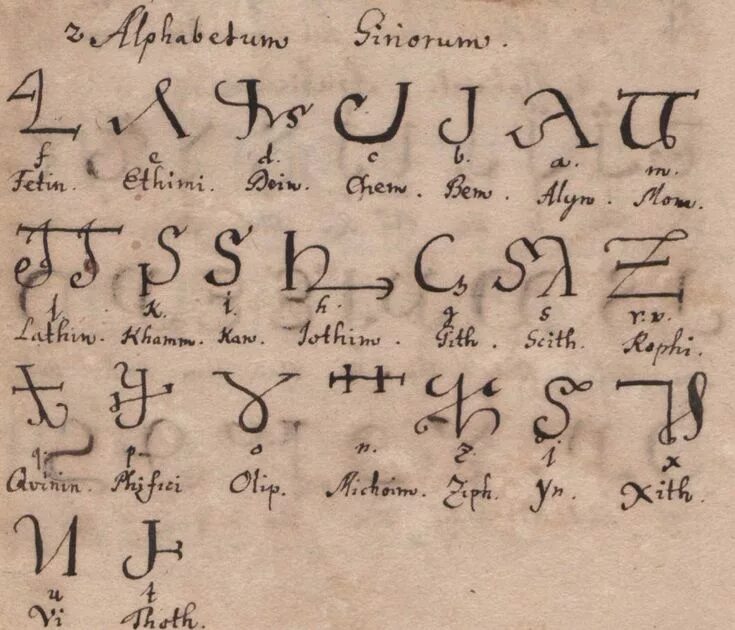 2 Alphabetum Siriorum.
f e d. c b. a. m.
Fetin. Ethimi. Dein. Chem. Bem. Alyn. Mom.
l k. i. h. g s r.v.
Lathim. Khamm. Kaw. Iothim. Gith. Scith. Rophi.
q. p. o n. z. j x
Qvinin. Phifici Olip. Michoim. Ziph. Yn. Xith.
u t
Vi Thoth.